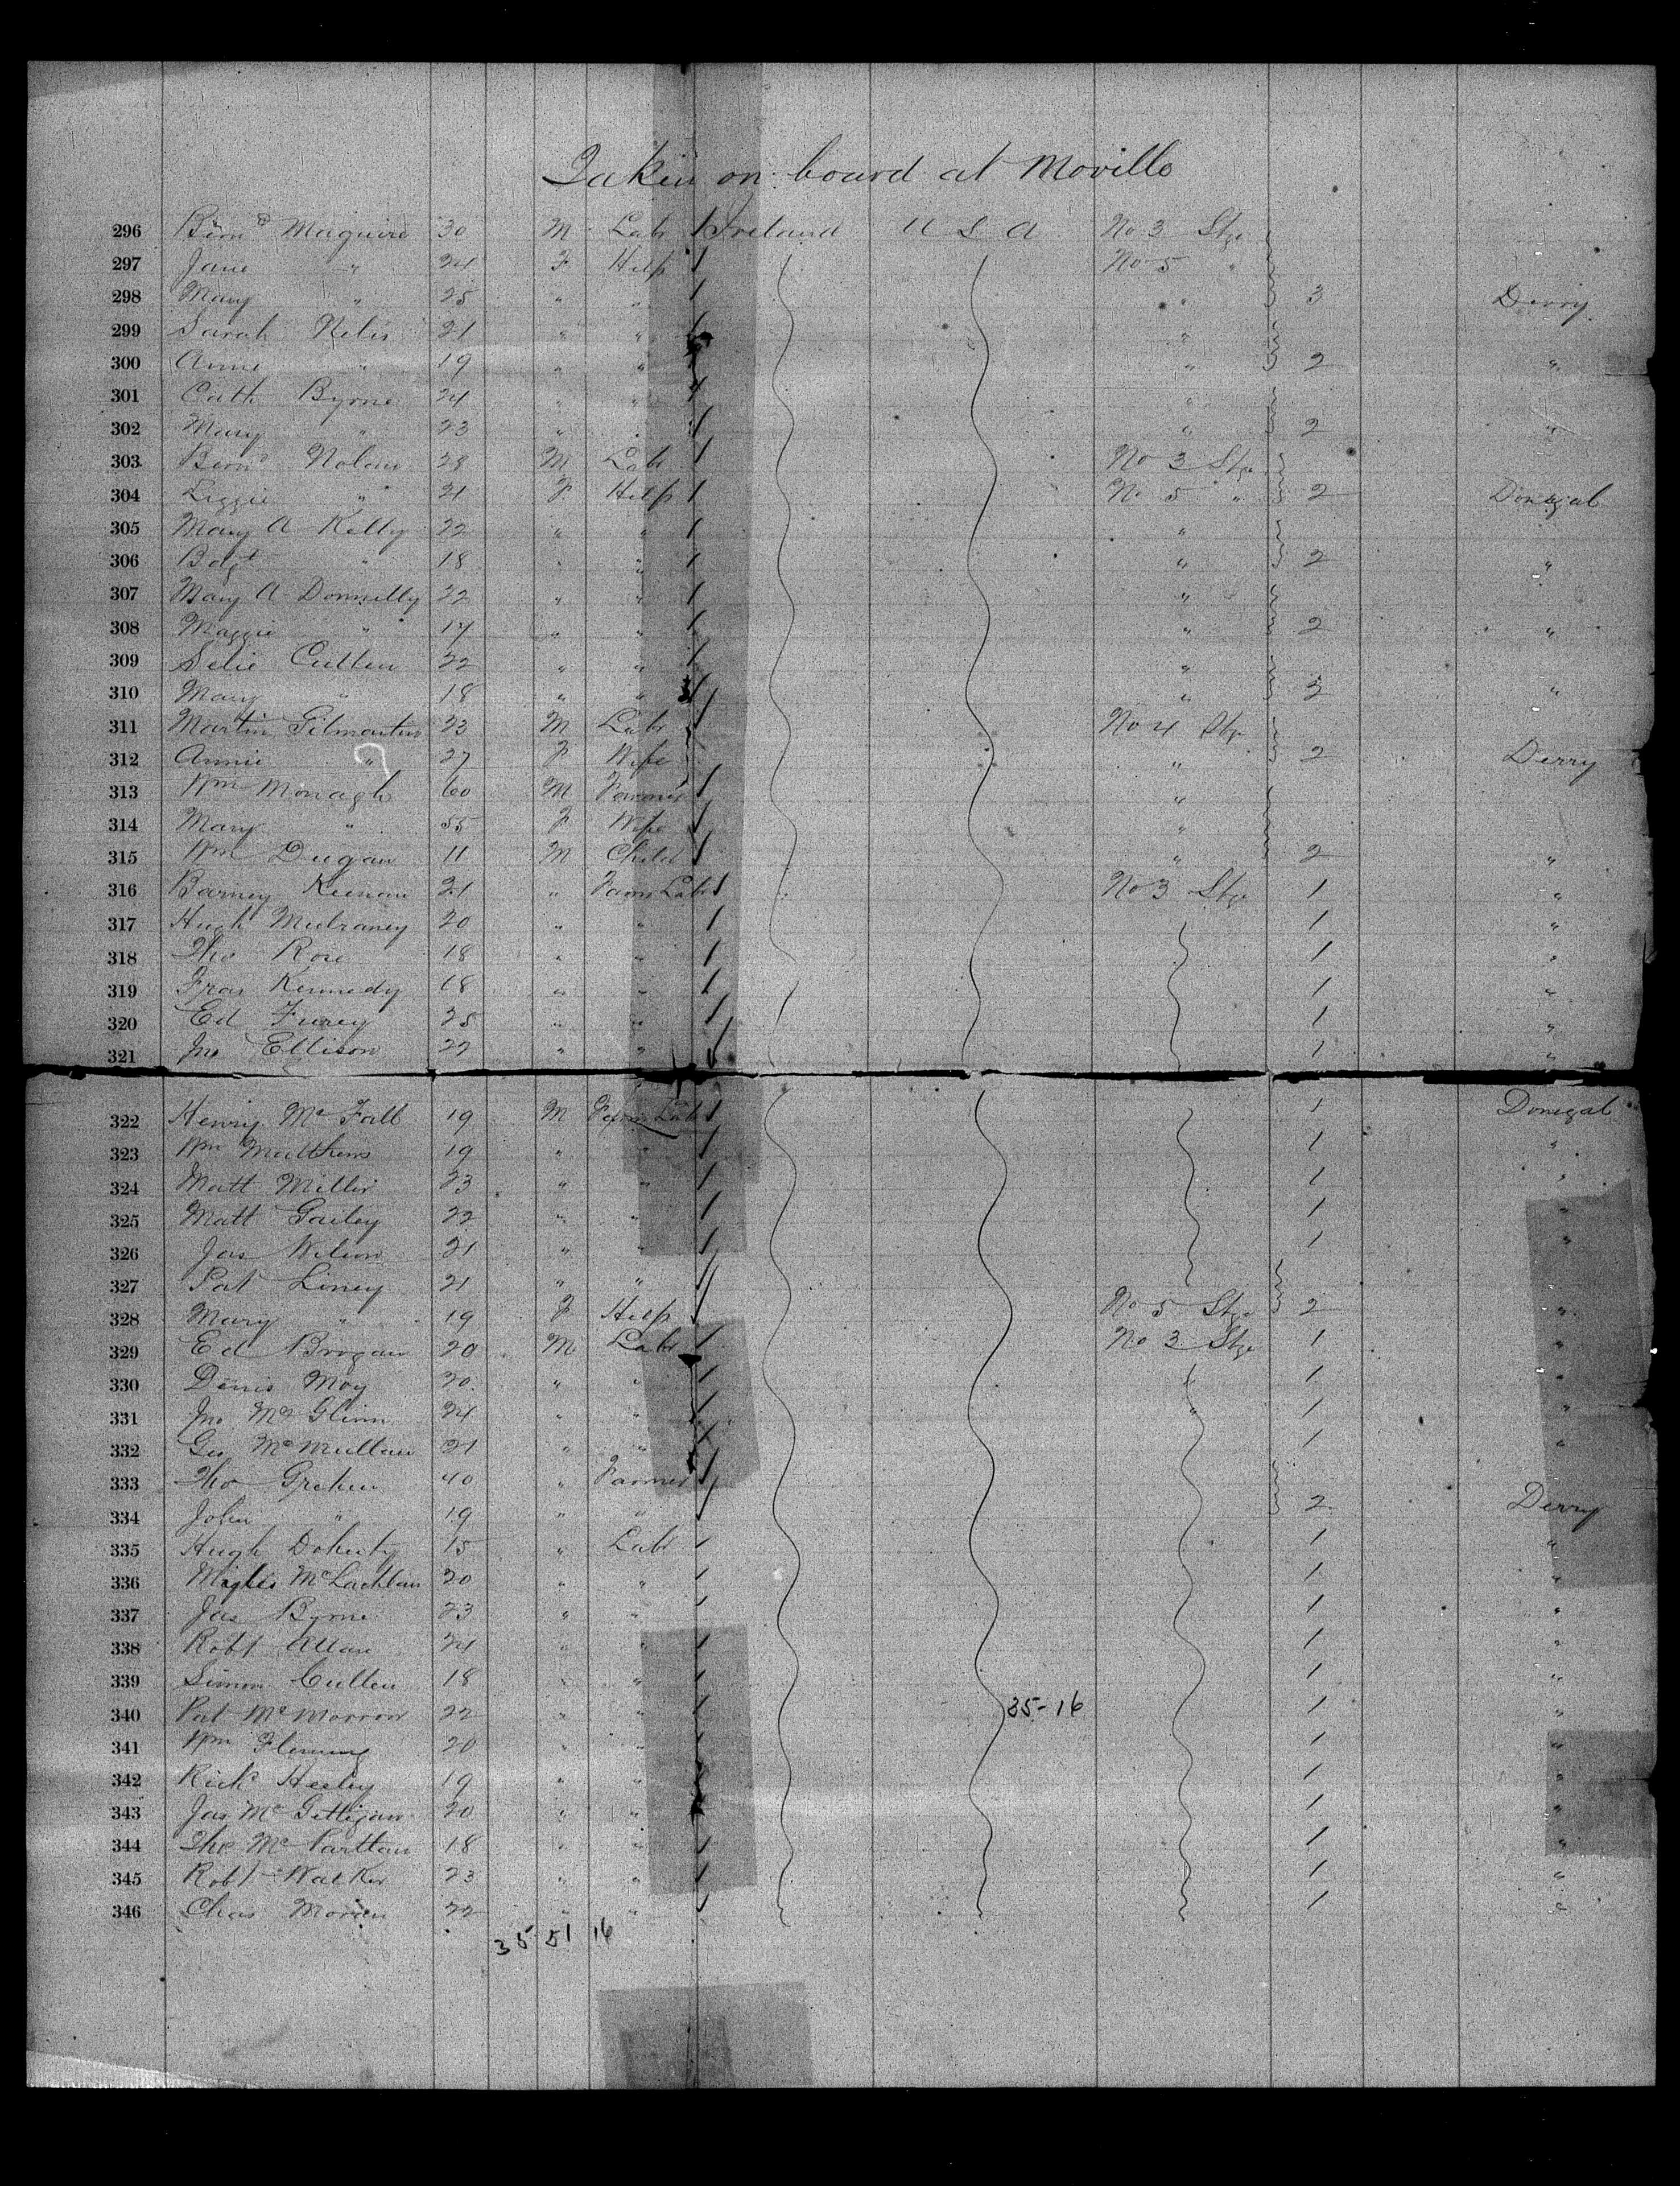 Taken on board at Moville
296 Bernd Maguire 30 M Labr 1 Ireland U S A No 3 Stge
297 Jane " 24 F Help 1 No 5 "
298 Mary " 25 " " 1 " 3 Derry
299 Sarah 21 " " 1 "
300 Annie " 19 " " " 2 "
301 Cath Byrne 24 " " 1 "
302 Mary " 23 " " 1 " 2 "
303 Bernd Nolan 28 M Labr 1 No 3 Stge
304 Lizzie " 21 F Help 1 No 5 " 2 Donegal
305 Mary A Kelly 22 " " 1 "
306 Bdgt " 18 " " 1 " 2 "
307 Mary A Donnelly 22 " " 1 "
308 Maggie " 17 " " 1 " 2 "
309 Selie Cullen 22 " " 1 "
310 Mary " 18 " " 1 " 2 "
311 Martin Gilmartin 23 M Labr 1 No 4 Stge
312 Annie " 27 F Wife " 2 Derry
313 Wm Monagh 60 M Farmer 1 "
314 Mary " 55 F Wife 1 "
315 Wm Dugan 11 M Child 1 " 2 "
316 Barney Keenan 21 " Farm Labr 1 No 3 Stge 1 "
317 Hugh Mulraney 20 " " 1 1 "
318 Tho Rose 18 " " 1 1 "
319 Fras Kennedy 18 " " 1 1 "
320 Ed Furey 25 " " 1 1 "
321 Jno Ellison 22 " " 1 1 "
322 Henry McFall 19 M Farm Labr 1 1 Donegal
323 Wm Matthews 19 " " 1 1 "
324 Matt Miller 23 " " 1 1 "
325 Matt Gailey 22 " " 1 1 "
326 Jas Wilson 21 " " 1 1 "
327 Pat Liney 21 " " 1
328 Mary " 19 F Help 1 No 5 Stge 2 "
329 Ed Brogan 20 M Labr 1 No 3 Stge 1 "
330 Denis Moy 20 " " 1 1 "
331 Jno McGlinn 24 " " 1 " 1 "
332 Geo McMullan 21 " " 1 1 "
333 Tho Grehen 40 " Farmer 1
334 John " 19 " " 1 2 Derry
335 Hugh Doherty 15 " Labr 1 1 "
336 Myles McLachlan 20 " " 1 1 "
337 Jas Byrne 23 " " 1 1 "
338 Robt Allan 24 " " 1 1 "
339 Simon Cullen 18 " " 1 1 "
340 Pat McMorrow 22 " " 1 35-16 1 "
341 Wm Fleming 20 " " 1 1 "
342 Richd Heeley 19 " " 1 1 "
343 Jas McGettigan 20 " " 1 1 "
344 Tho McPartlan 18 " " 1 1 "
345 Robt Walker 23 " " 1 1 "
346 Chas 22 " " 1 1 "
35 51 16